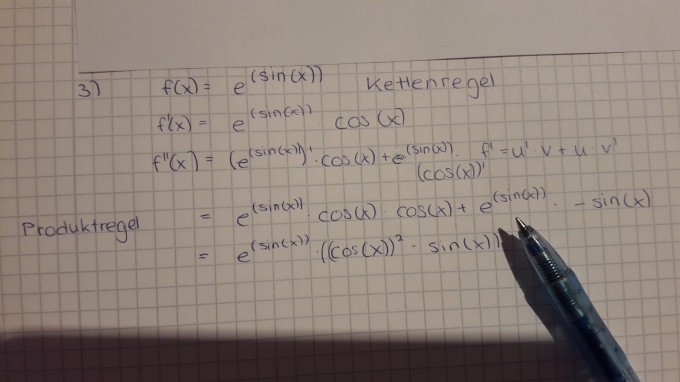 3) f(x) = e^(sin(x)) Kettenregel
f'(x) = e^(sin(x)) · cos(x)
f''(x) = (e^(sin(x)))' · cos(x) + e^(sin(x)) · f' = u' · v + u · v'
(cos(x))'
Produktregel = e^(sin(x)) · cos(x) · cos(x) + e^(sin(x)) · - sin(x)
= e^(sin(x)) · ((cos(x))² - sin(x))